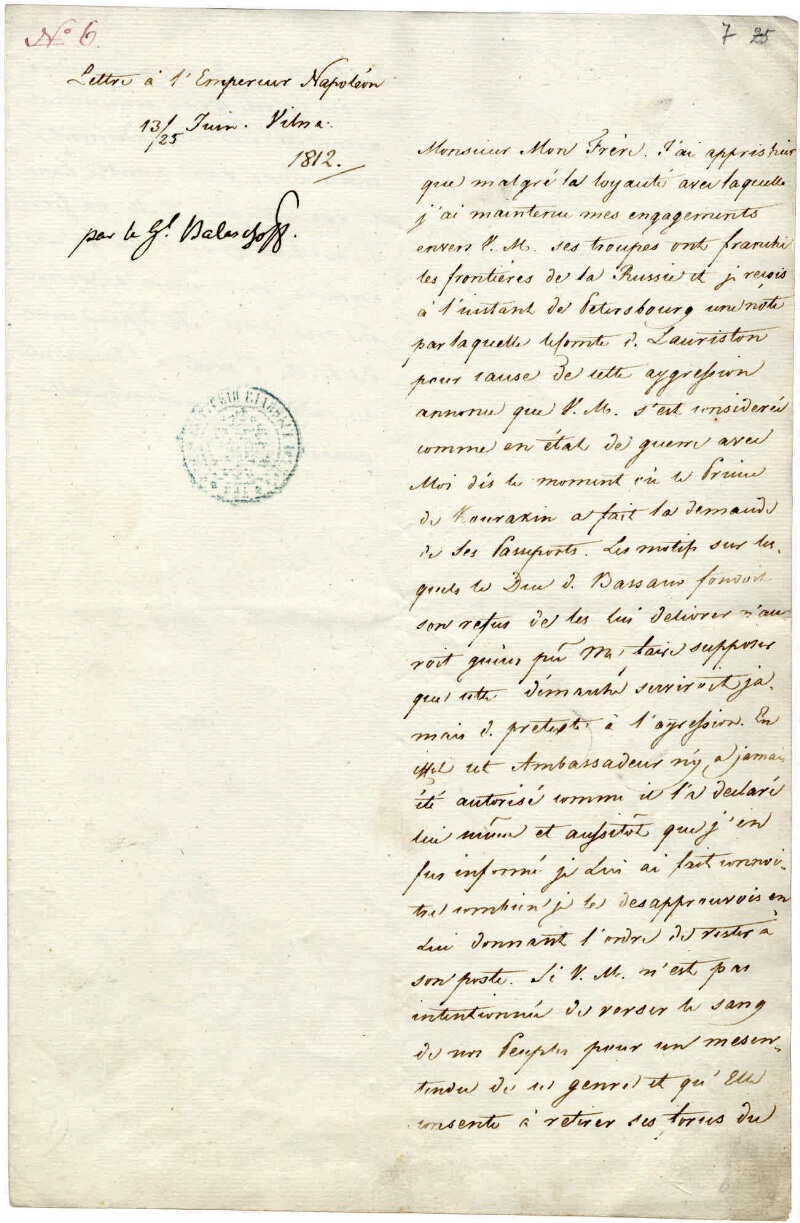 № 6.
7 25
Lettre à l'Empereur Napoléon
13/25 Juin. Vilna.
1812.
par le Gl. Balaschoff.
Monsieur Mon Frère. J'ai appris hier
que malgré la loyauté avec laquelle
j'ai maintenu mes engagements
envers V. M. ses troupes ont franchi
les frontières de la Russie et je reçois
à l'instant de Petersbourg une note
par laquelle le Comte d. Lauriston
pour cause de cette aggression
annonce que V. M. s'est considerée
comme en état de guerre avec
Moi dès le moment où le Prince
de Kourakin a fait la demande
de ses Passeports. Les motifs sur les-
quels le Duc d. Bassano fondoit
son refus de les lui delivrer n'au
roit guères pû Me faire supposer
que cette démarche serviroit ja-
mais d. pretexte à l'agression. En
effet cet Ambassadeur n'y a jamais
été autorisé comme il l'a declaré
lui même et aussitôt que j'en
fus informé je lui ai fait connoi-
tre combien je le desapprouvois en
Lui donnant l'ordre de rester à
son poste. Si V. M. n'est pas
intentionnée de verser le sang
de nos Peuples pour un mesen-
tendu de ce genre et qu'Elle
consente à retirer ses forces du